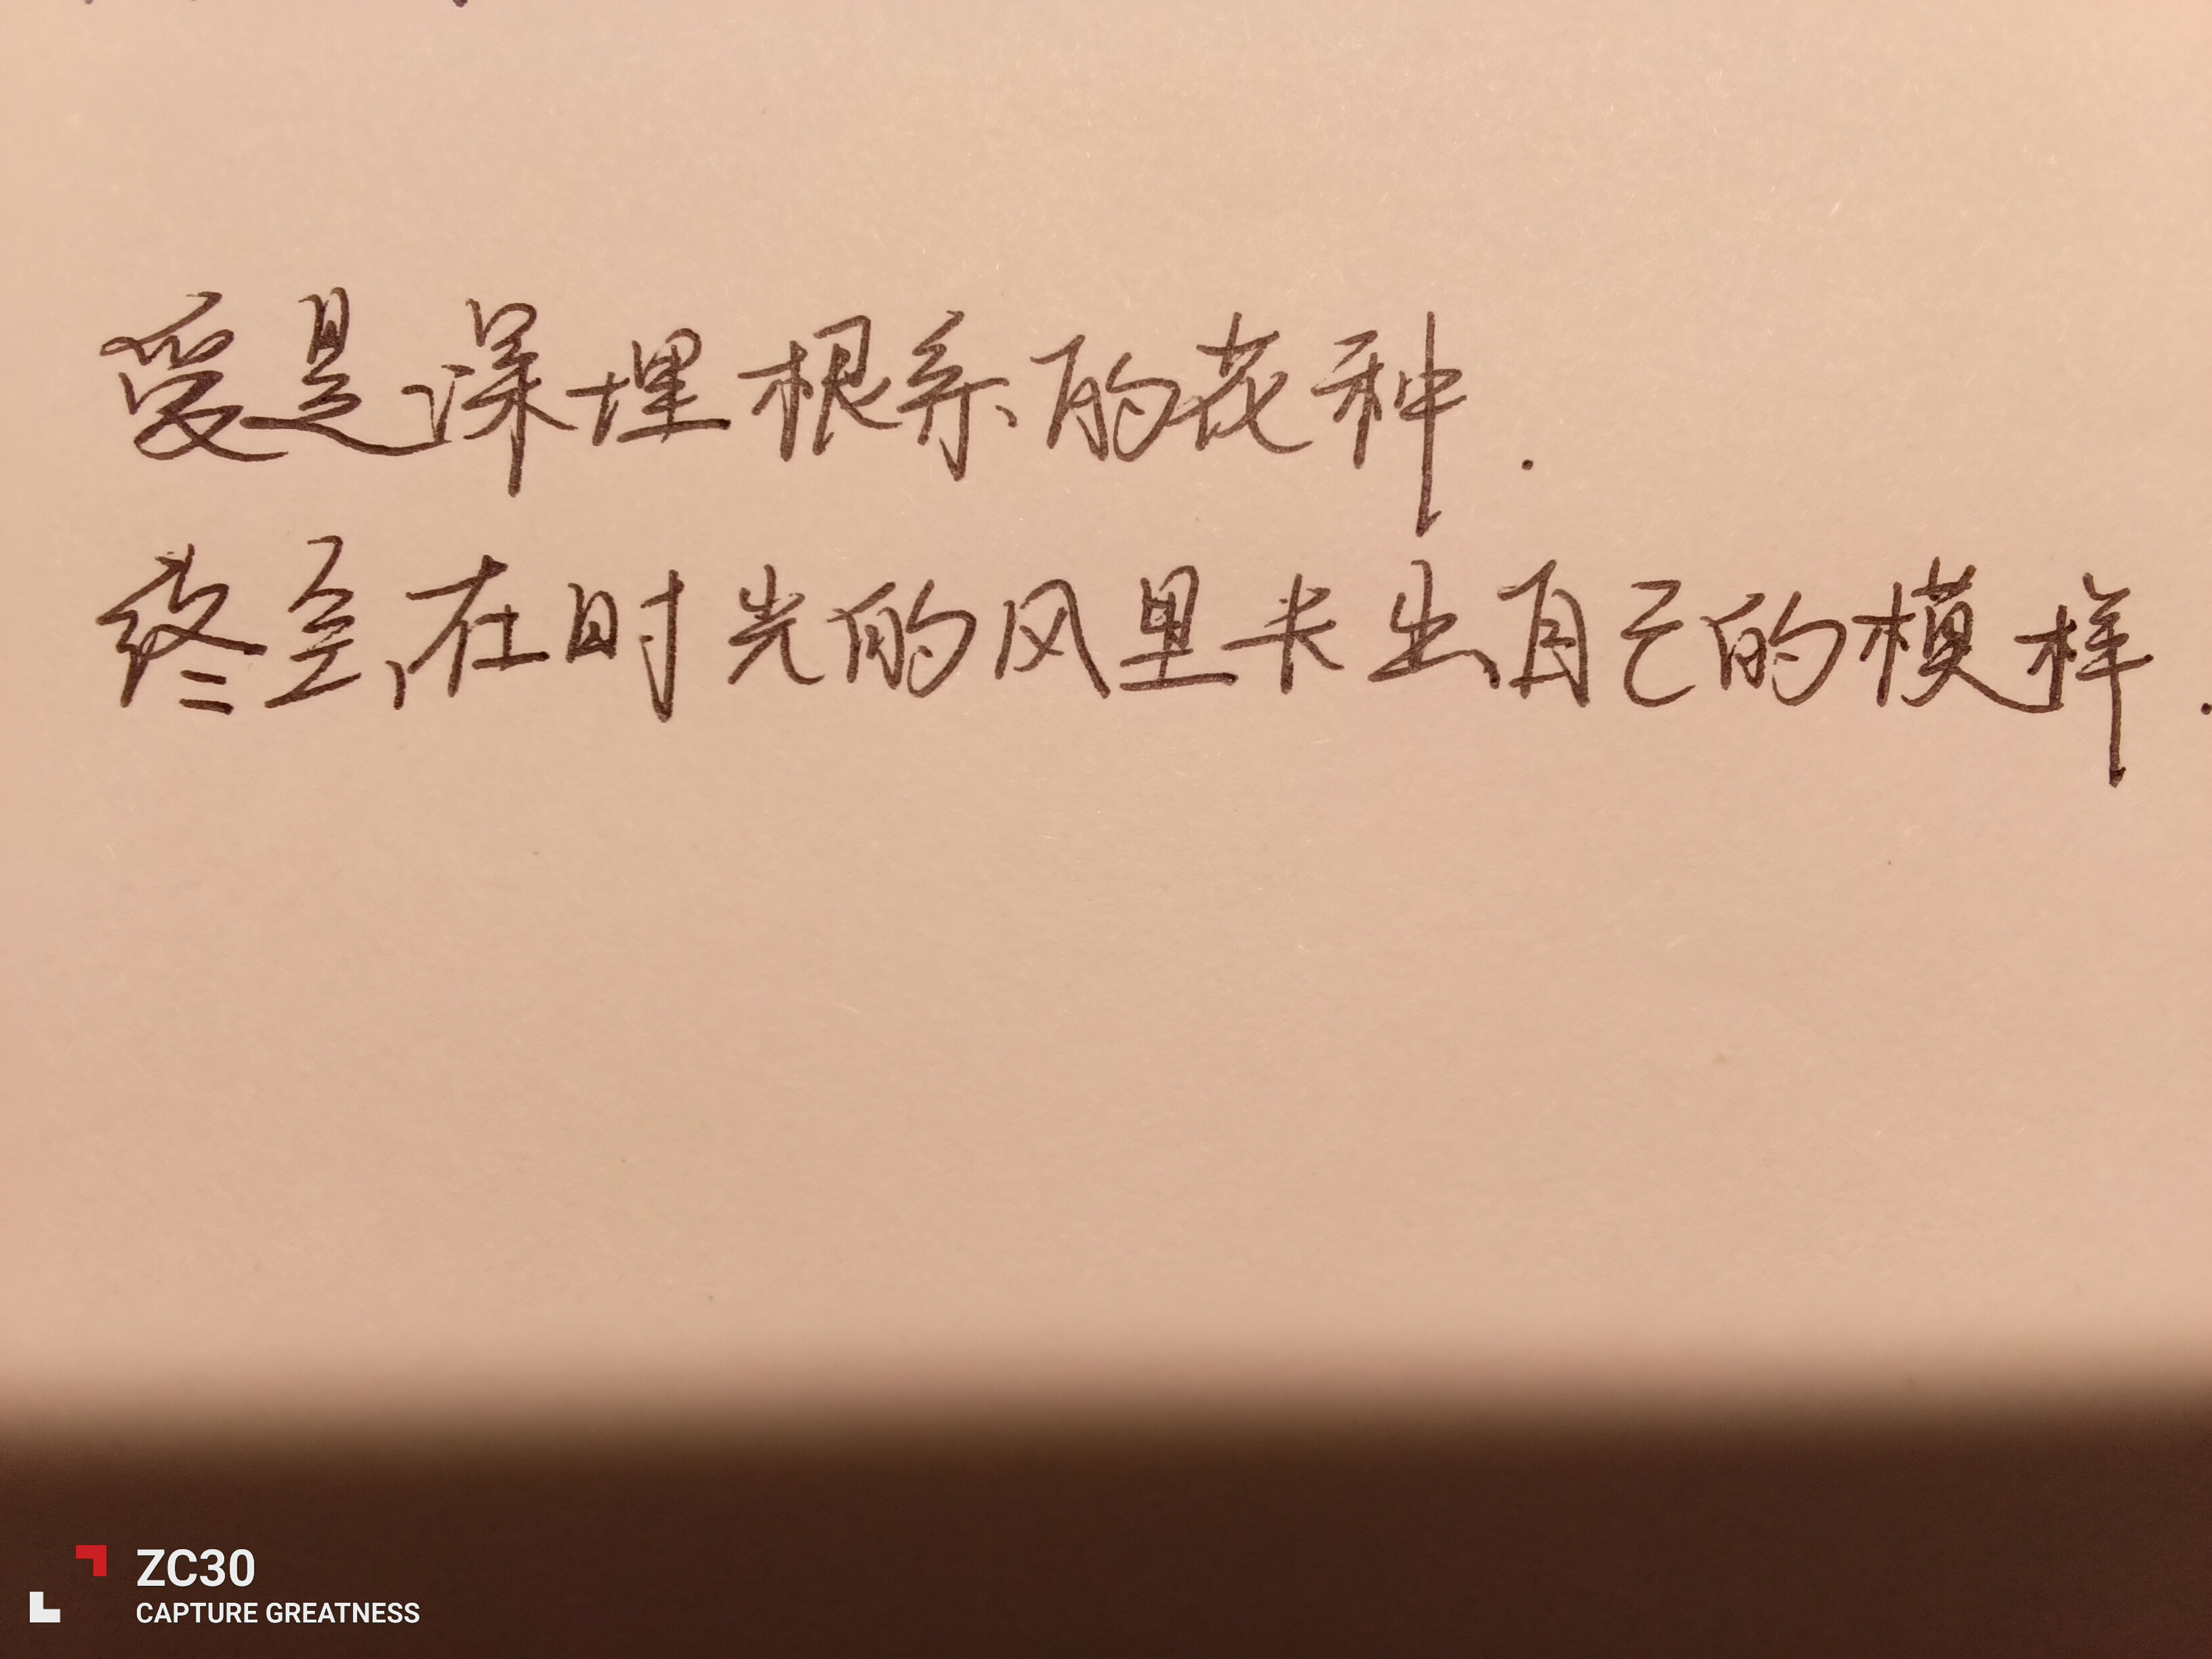 爱是深埋根系的花种.
终会在时光的风里长出自己的模样.
ZC30
CAPTURE GREATNESS